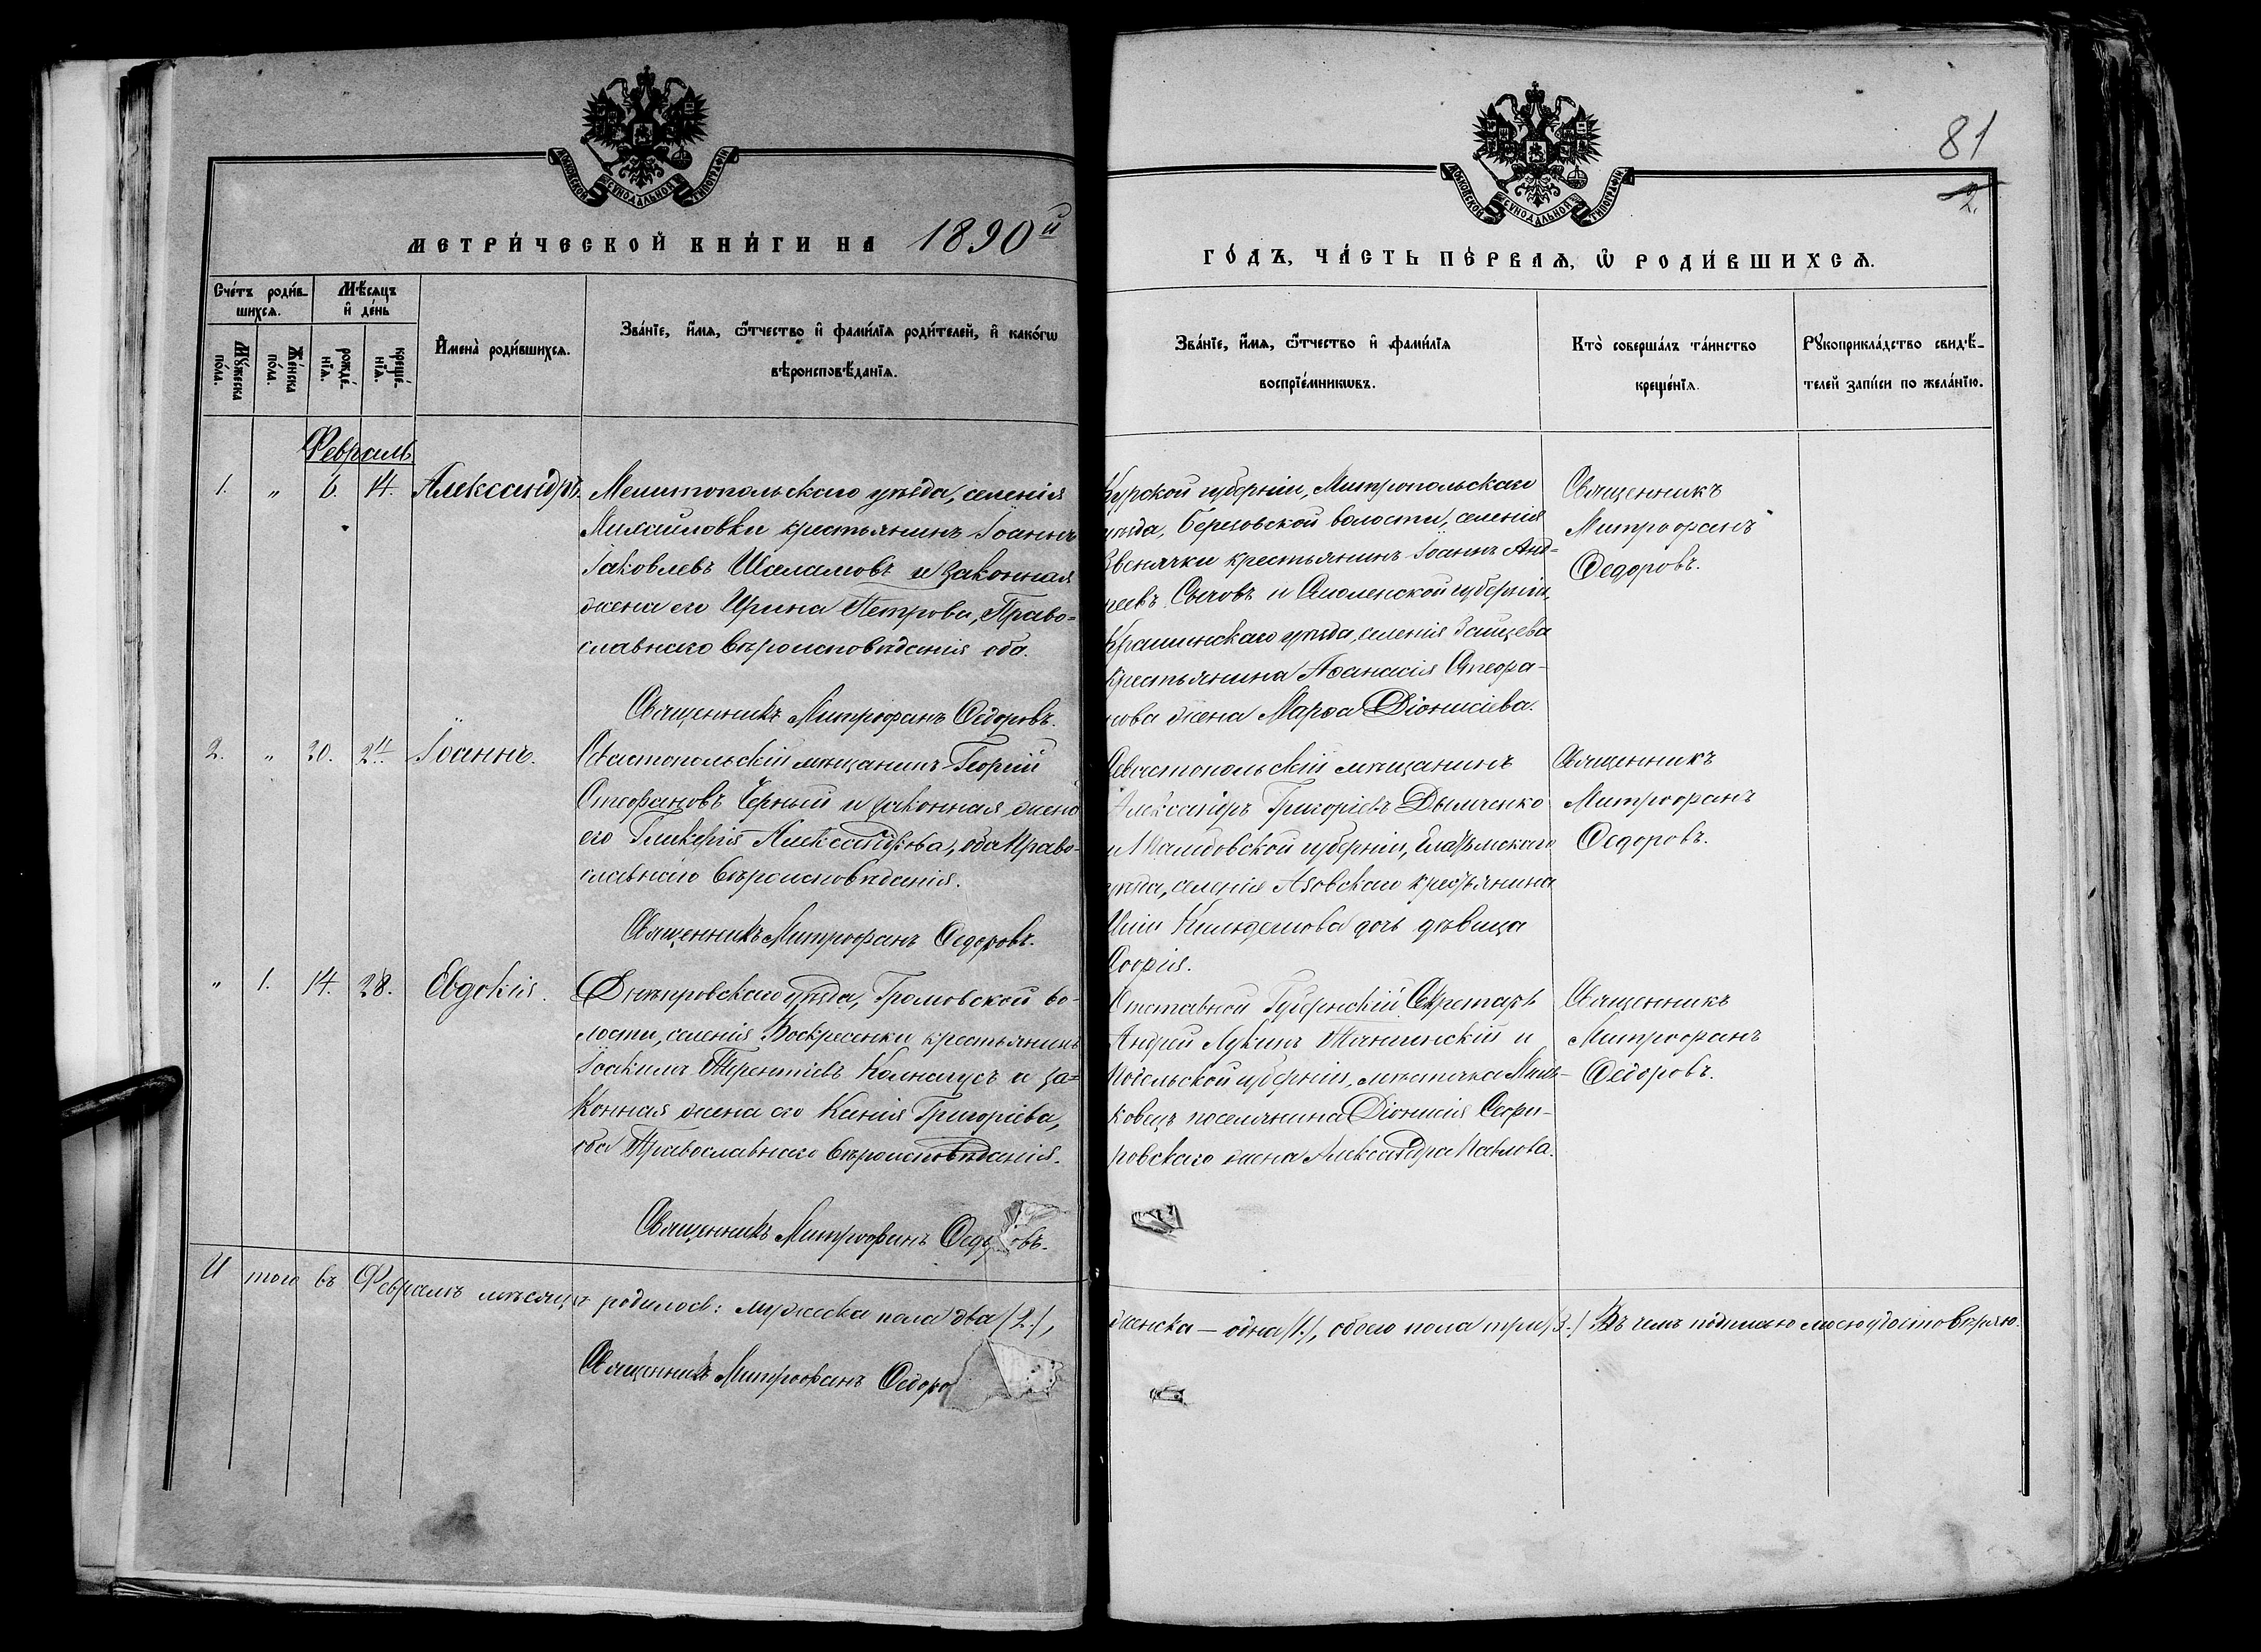 МОСКОВСКОЙ СѴНОДАЛЬНОЙ ТИПОГРАФІИ
МЕТРИ́ЧЕСКОЙ КНИ́ГИ НА 1890й
Сче́тъ роди́в-
шихсѧ.
Мѣ́сѧцъ
и҆ де́нь
Мꙋ́жеска
по́ла.
Же́нска
по́ла.
рожде́-
нїѧ.
креще́-
нїѧ.
И҆мена̀ роди́вшихсѧ.
Зва́нїе, и҆́мѧ, ѻ҆́тчество и҆ фами́лїѧ роди́телей, и҆ како́гѡ
вѣроисповѣ́данїѧ.
Февраль
1. " 6. 14. Александръ.
Мелитопольскаго уѣзда, селенія
Михайловки крестьянинъ Іоаннъ
Іаковлевъ Шаламовъ и законная
жена его Ирина Петрова, Право=
славнаго вѣроисповѣданія оба.
Священникъ Митрофанъ Ѳедоровъ.
2. " 20. Іоаннъ.
Севастопольскій мѣщанинъ Георгій
Стефановъ Черный и законная жена
его Гликерія Александрова, оба Право-
славнаго вѣроисповѣданія.
Священникъ Митрофанъ Ѳедоровъ.
" 1. 14. 28. Евдокія.
Днѣпровскаго уѣзда, Громовской во-
лости, селенія Воскресенки крестьянинъ
Іоакимъ Терентіевъ и за=
конная жена его Ксенія Григоріева,
оба Православнаго вѣроисповѣданія.
Священникъ Митрофанъ Ѳед овъ.
Итого въ Февралѣ мѣсяцѣ родилось: мужеска пола два (2.),
Священникъ Митрофанъ Ѳедоро
МОСКОВСКОЙ СѴНОДАЛЬНОЙ ТИПОГРАФІИ
81
2.
ГО́ДЪ, ЧА́СТЬ ПЕ́РВАѦ, Ѡ҆ РОДИ́ВШИХСѦ.
Зва́нїе, и҆́мѧ, ѻ҆́тчество и҆ фами́лїѧ
воспрїе́мникѡвъ.
Кто̀ соверша́лъ та́инство
креще́нїѧ.
Рꙋкоприкла́дство свидѣ́-
телей за́писи по жела́нїю.
Курской губерніи, Митропольскаго
уѣзда, Березовской волости, селенія
Звенячки крестьянинъ Іоаннъ Анд=
реевъ Сычовъ и Смоленской губерніи,
уѣзда, селенія Зайцева
крестьянина Аѳанасія Стефа-
нова жена Марѳа Діонисіева.
Священникъ
Митрофанъ
Ѳедоровъ.
Севастопольскій мѣщанинъ
Александръ Григоріевъ Дымченко
и Тамбовской губерніи, Елатьмскаго
уѣзда, селенія Азовскаго крестьянина
дочь дѣвица
Софія.
Священникъ
Митрофанъ
Ѳедоровъ.
Отставной Губернскій Секретарь
Андрей Лукинъ и
Подольской губерніи, мѣстечка Минь-
ковецъ поселянина Діонисія
жена Александра Павлова.
Священникъ
Митрофанъ
Ѳедоровъ.
женска — одна (1.), обоего пола три (3.) Въ чемъ подписью моею удостовѣряю.